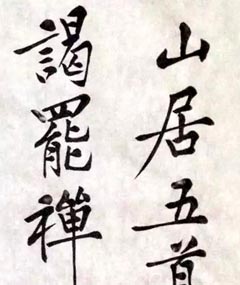 山居五首
謁罷禪